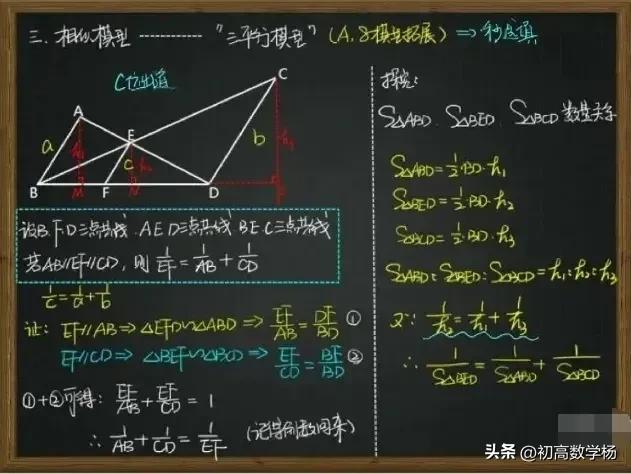 三.相似模型 ------------ "三平行模型" (A,8模型拓展) ⇒ 秒填
C位出道
A
B
C
D
E
F
M
N
a
b
c
h₁
h₂
h₃
设B.F.D三点共线 A.E.D三点共线 B.E.C三点共线
若AB//EF//CD, 则 1/EF = 1/AB + 1/CD
1/c = 1/a + 1/b
证: EF//AB ⇒ △EFD∽△ABD ⇒ EF/AB = DF/BD ①
EF//CD ⇒ △BEF∽△BCD ⇒ EF/CD = BF/BD ②
①+②可得: EF/AB + EF/CD = 1
∴ 1/AB + 1/CD = 1/EF (记得倒数回来)
探究:
S△ABD、S△BED、S△BCD 数量关系
S△ABD = 1/2·BD·h₁
S△BED = 1/2·BD·h₂
S△BCD = 1/2·BD·h₃
S△ABD : S△BED : S△BCD = h₁ : h₂ : h₃
又∵ 1/h₂ = 1/h₁ + 1/h₃
∴ 1/S△BED = 1/S△ABD + 1/S△BCD
头条 @初高数学杨